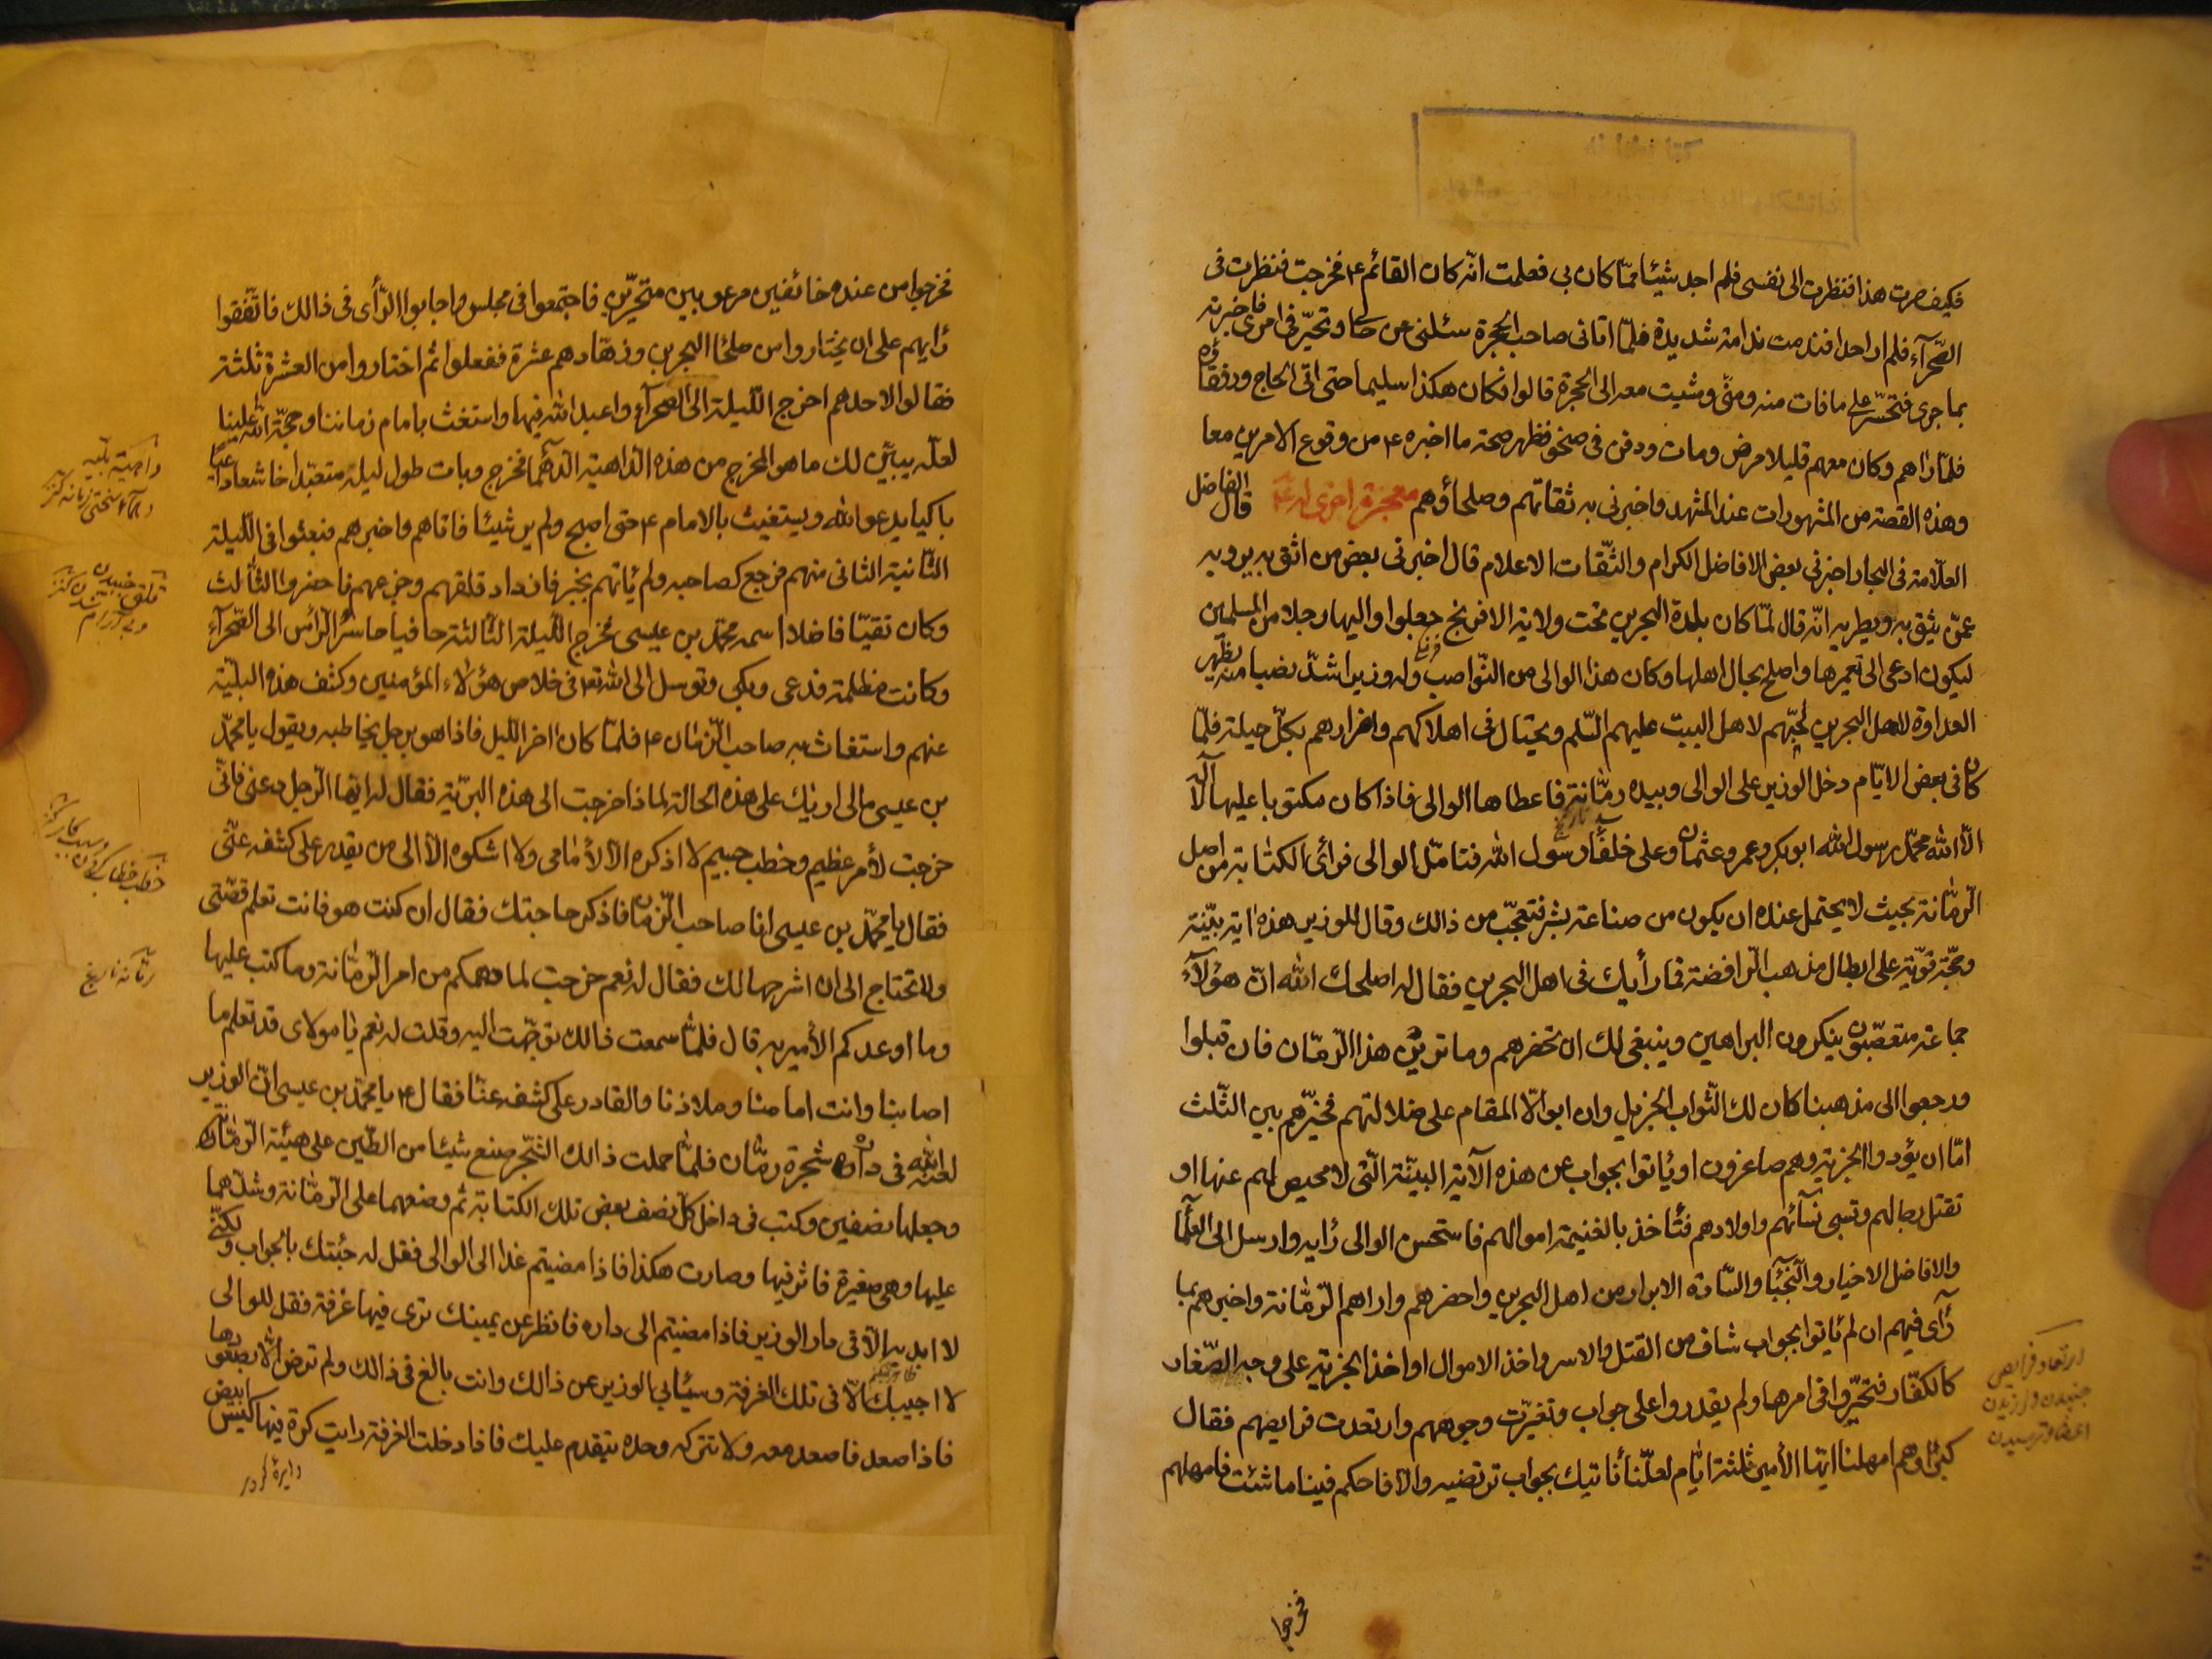 فكيف صرت هذا فنظرت الى نفسى فلم اجد شيئا ممّا كان بى فعلمت انّه كان القائم ع فخرجت فنظرت فى
الصّحرآء فلم ار احدا فندمت ندامة شديدة فلمّا اتانى صاحب الحجرة سئلنى عن حالى وتحيّر فى امرى فاخبرته
بما جرى فتحسّر على ما فات منه ومنّى ومشيت معه الى الحجرة قالوا فكان هكذا سليما حتى اتى الحاج ورفقاؤه
فلمّا راهم وكان معهم قليلا مرض ومات ودفن فى صخو فظهر صحة ما اخبره ع من وقوع الامرين معا
وهذه القصة من المشهورات عند المشهد واخبرنى به ثقاتهم وصلحاؤهم معجزة اخرى له ع قال الفاضل
العلّامة فى البحار اخبرنى بعض الافاضل الكرام والثّقات الاعلام قال اخبرنى بعض من اثق به يرويه
عمّن يثق به ويطريه انّه قال لمّا كان بلدة البحرين تحت ولاية الافرنج جعلوا واليها رجلا من المسلمين
ليكون ادعى الى تعميرها واصلح بحال اهلها وكان هذا الوالى من النّواصب وله وزير اشدّ نصبا منه يظهر
العداوة لاهل البحرين لحبّهم لاهل البيت عليهم السّلم ويحتال فى اهلاكهم واضرارهم بكلّ حيلة فلمّا
كان فى بعض الايّام دخل الوزير على الوالى وبيده رمّانة فاعطاها الوالى فاذا كان مكتوبا عليها لا آله
الّا الله محمّد رسول الله ابوبكر وعمر وعثمان وعلى خلفآء رسول الله فتامّل الوالى فرأى الكتابة من اصل
الرّمّانة بحيث لا يحتمل عنده ان يكون من صناعة بشر فتعجّب من ذالك وقال للوزير هذه اية بيّنة
وحجّة قويّة على ابطال مذهب الرّافضة فما رأيك فى اهل البحرين فقال له اصلحك الله انّ هؤلآء
جماعة متعصّبون ينكرون البراهين وينبغى لك ان تحضرهم وماتريّن هذا الرّمّان فان قبلوا
ورجعوا الى مذهبنا كان لك الثّواب الجزيل وان ابوا الّا المقام على ضلالتهم فخيّرهم بين الثّلث
امّا ان يؤدوا الجزية وهم صاغرون او يأتوا بجواب عن هذه الآية البيّنة الّتى لا محيص لهم عنها او
تقتل رجالهم وتسبى نسآئهم واولادهم فتأخذ بالغنيمة اموالهم فاستحسن الوالى رايه وارسل الى العلمآء
والافاضل الاخيار والنّجبآء والسّادة الابرار من اهل البحرين واحضرهم واراهم الرّمّانة واخبرهم بما
رآى فيهم ان لم يأتوا بجواب شاف من القتل والاسر واخذ الاموال او اخذ الجزية على وجه الصّغار
كالكفّار فتحيّروا فى امرها ولم يقدروا على جواب وتغيّرت وجوههم وارتعدت فرايصهم فقال
كبراؤهم امهلنا ايّها الأمير ثلثة ايّام لعلّنا نأتيك بجواب ترتضيه والّا فاحكم فينا ما شئت فامهلهم
ارتعاد فرايص
جنبيدن و لرزيدن
اعضا و ترسيدن
فخرجوا
فخرجوا من عنده خائفين مرعوبين متحيّرين فاجتمعوا فى مجلس واجابوا الرّأى فى ذالك فاتّفقوا
رايهم على ان يختاروا من صلحآء البحرين وزهّادهم عشرة ففعلوا ثم اختاروا من العشرة ثلثة
فقالوا لاحدهم اخرج اللّيلة الى الصحرآء واعبد الله فيها واستغث بامام زماننا وحجّة الله علينا
لعلّه يبيّن لك ما هو المخرج من هذه الدّاهية الدّهمآء فخرج وبات طول ليله متعبّدا خاشعا داعيا
باكيا يدعو الله ويستغيث بالامام ع حتى اصبح ولم ير شيئا فاتاهم واخبرهم فبعثوا فى اللّيلة
الثّانية الثانى منهم فرجع كصاحبه ولم يأتهم بخبر فازداد قلقهم وجزعهم فاحضروا الثّالث
وكان تقيّا فاضلا اسمه محمّد بن عيسى فخرج اللّيلة الثّالثة حافيا حاسر الرّأس الى الصّحرآء
وكانت مظلمة فدعى وبكى وتوسل الى الله تعا فى خلاص هؤلاء المؤمنين وكشف هذه البليّة
عنهم واستغاث به صاحب الزّمان ع فلمّا كان اخر اللّيل فاذا هو برجل يخاطبه ويقول يا محمّد
بن عيسى مالى اريك على هذه الحالة لماذا خرجت الى هذه البريّة فقال له ايّها الرّجل دعنى فانّى
خرجت لأمر عظيم وخطب جسيم لا اذكره الّا لأمامى ولا اشكوه الّا الى من يقدر على كشفه عنّى
فقال يا محمّد بن عيسى انا صاحب الزّمان فاذكر حاجتك فقال ان كنت هو فانت تعلم قصّتى
ولا تحتاج الى ان اشرحها لك فقال له نعم خرجت لما دهمكم من امر الرّمّانة وما كتب عليها
وما اوعدكم الأمير به قال فلمّا سمعت ذالك توجّهت اليه وقلت له نعم يا مولاى قد تعلم ما
اصابنا وانت امامنا وملاذنا والقادر على كشفه عنّا فقال ع يا محمّد بن عيسى انّ الوزير
لعنه الله فى داره شجرة رمّان فلمّا حملت ذالك الشّجر صنع شيئا من الطّين على هيئة الرّمّان
وجعلها نصفين وكتب فى داخل كلّ نصف بعض تلك الكتابة ثم وضعهما على الرّمّانة وشدّهما
عليها وهى صغيرة فاثر فيها وصارت هكذا فاذا مضيتم غدا الى الوالى فقل له جئتك بالجواب ولكنّى
لا ابديه الّا فى دار الوزير فاذا مضيتم الى داره فانظر عن يمينك ترى فيها غرفة فقل للوالى
لا اجيبك الّا فى تلك الغرفة وسيأبى الوزير عن ذالك وانت بالغ فى ذالك ولم ترض الّا بصعودها
فاذا صعد فاصعد معه ولا تتركه وحده يتقدم عليك فاذا دخلت الغرفة رايت كوة فيها كيس ابيض